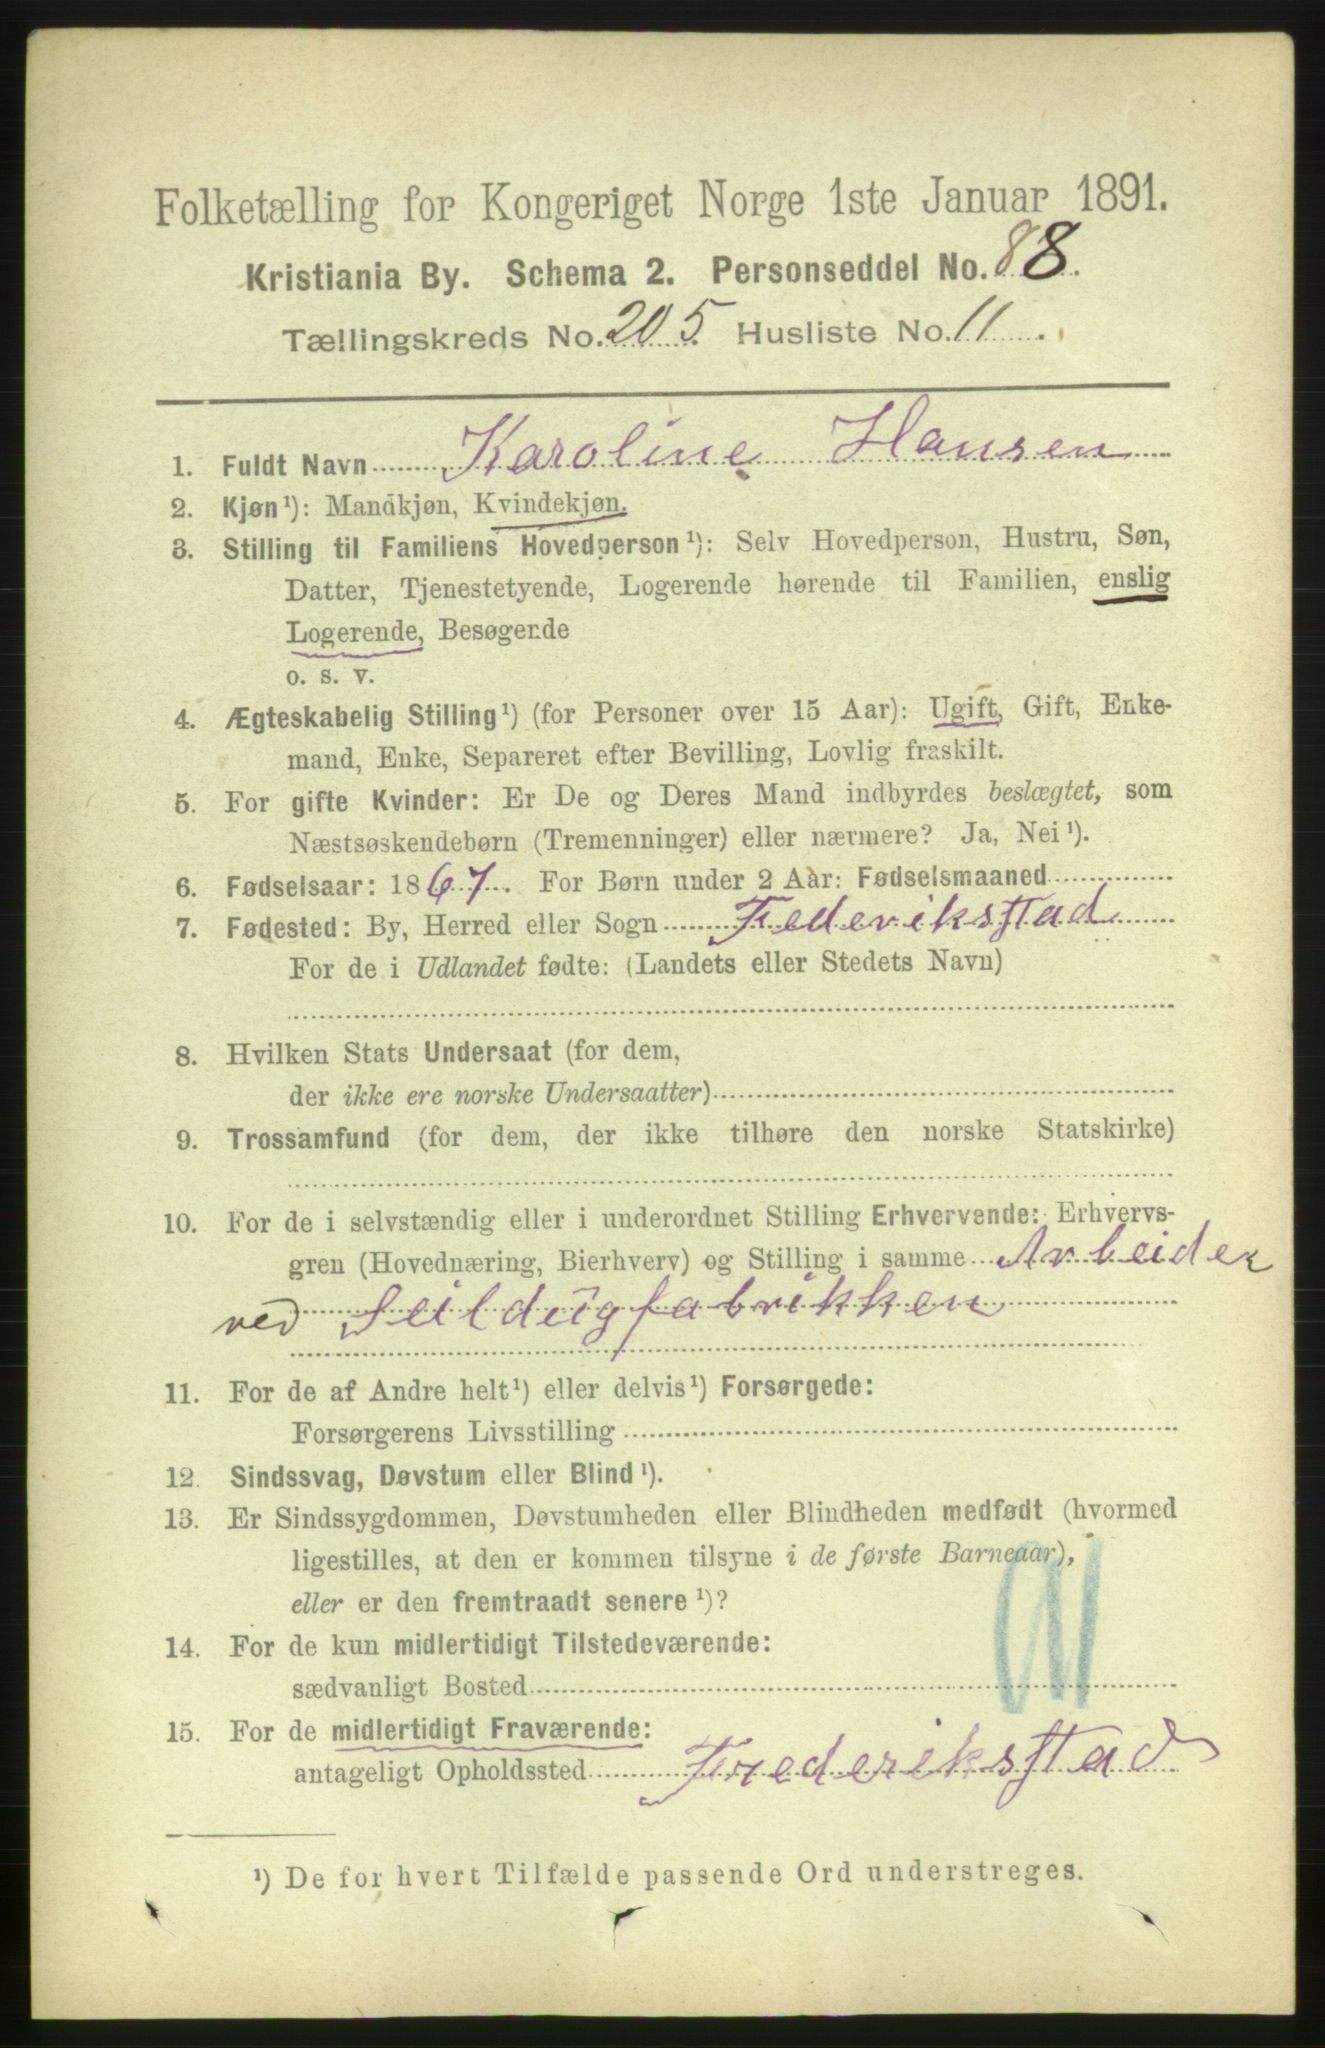 Folketælling for Kongeriget Norge 1ste Januar 1891.
Kristiania By. Schema 2. Personseddel No. 88.
Tællingskreds No. 205. Husliste No. 11.
1. Fuldt Navn Karoline Hansen
2. Kjøn¹): Mandkjøn, Kvindekjøn.
3. Stilling til Familiens Hovedperson¹): Selv Hovedperson, Hustru, Søn,
Datter, Tjenestetyende, Logerende hørende til Familien, enslig
Logerende, Besøgende
o. s. v.
4. Ægteskabelig Stilling¹) (for Personer over 15 Aar): Ugift, Gift, Enke-
mand, Enke, Separeret efter Bevilling, Lovlig fraskilt.
5. For gifte Kvinder: Er De og Deres Mand indbyrdes beslægtet, som
Næstsøskendebørn (Tremenninger) eller nærmere? Ja, Nei¹).
6. Fødselsaar: 1867. For Børn under 2 Aar: Fødselsmaaned
7. Fødested: By, Herred eller Sogn Federiksstad
For de i Udlandet fødte: (Landets eller Stedets Navn)
8. Hvilken Stats Undersaat (for dem,
der ikke ere norske Undersaatter)
9. Trossamfund (for dem, der ikke tilhøre den norske Statskirke)
10. For de i selvstændig eller i underordnet Stilling Erhvervende: Erhvervs-
gren (Hovednæring, Bierhverv) og Stilling i samme Arbeider
ved Seildugfabrikken
11. For de af Andre helt¹) eller delvis¹) Forsørgede:
Forsørgerens Livsstilling
12. Sindssvag, Døvstum eller Blind¹).
13. Er Sindssygdommen, Døvstumheden eller Blindheden medfødt (hvormed
ligestilles, at den er kommen tilsyne i de første Barneaar),
eller er den fremtraadt senere¹)?
14. For de kun midlertidigt Tilstedeværende:
sædvanligt Bosted
15. For de midlertidigt Fraværende:
antageligt Opholdssted Frederiksstad
¹) De for hvert Tilfælde passende Ord understreges.